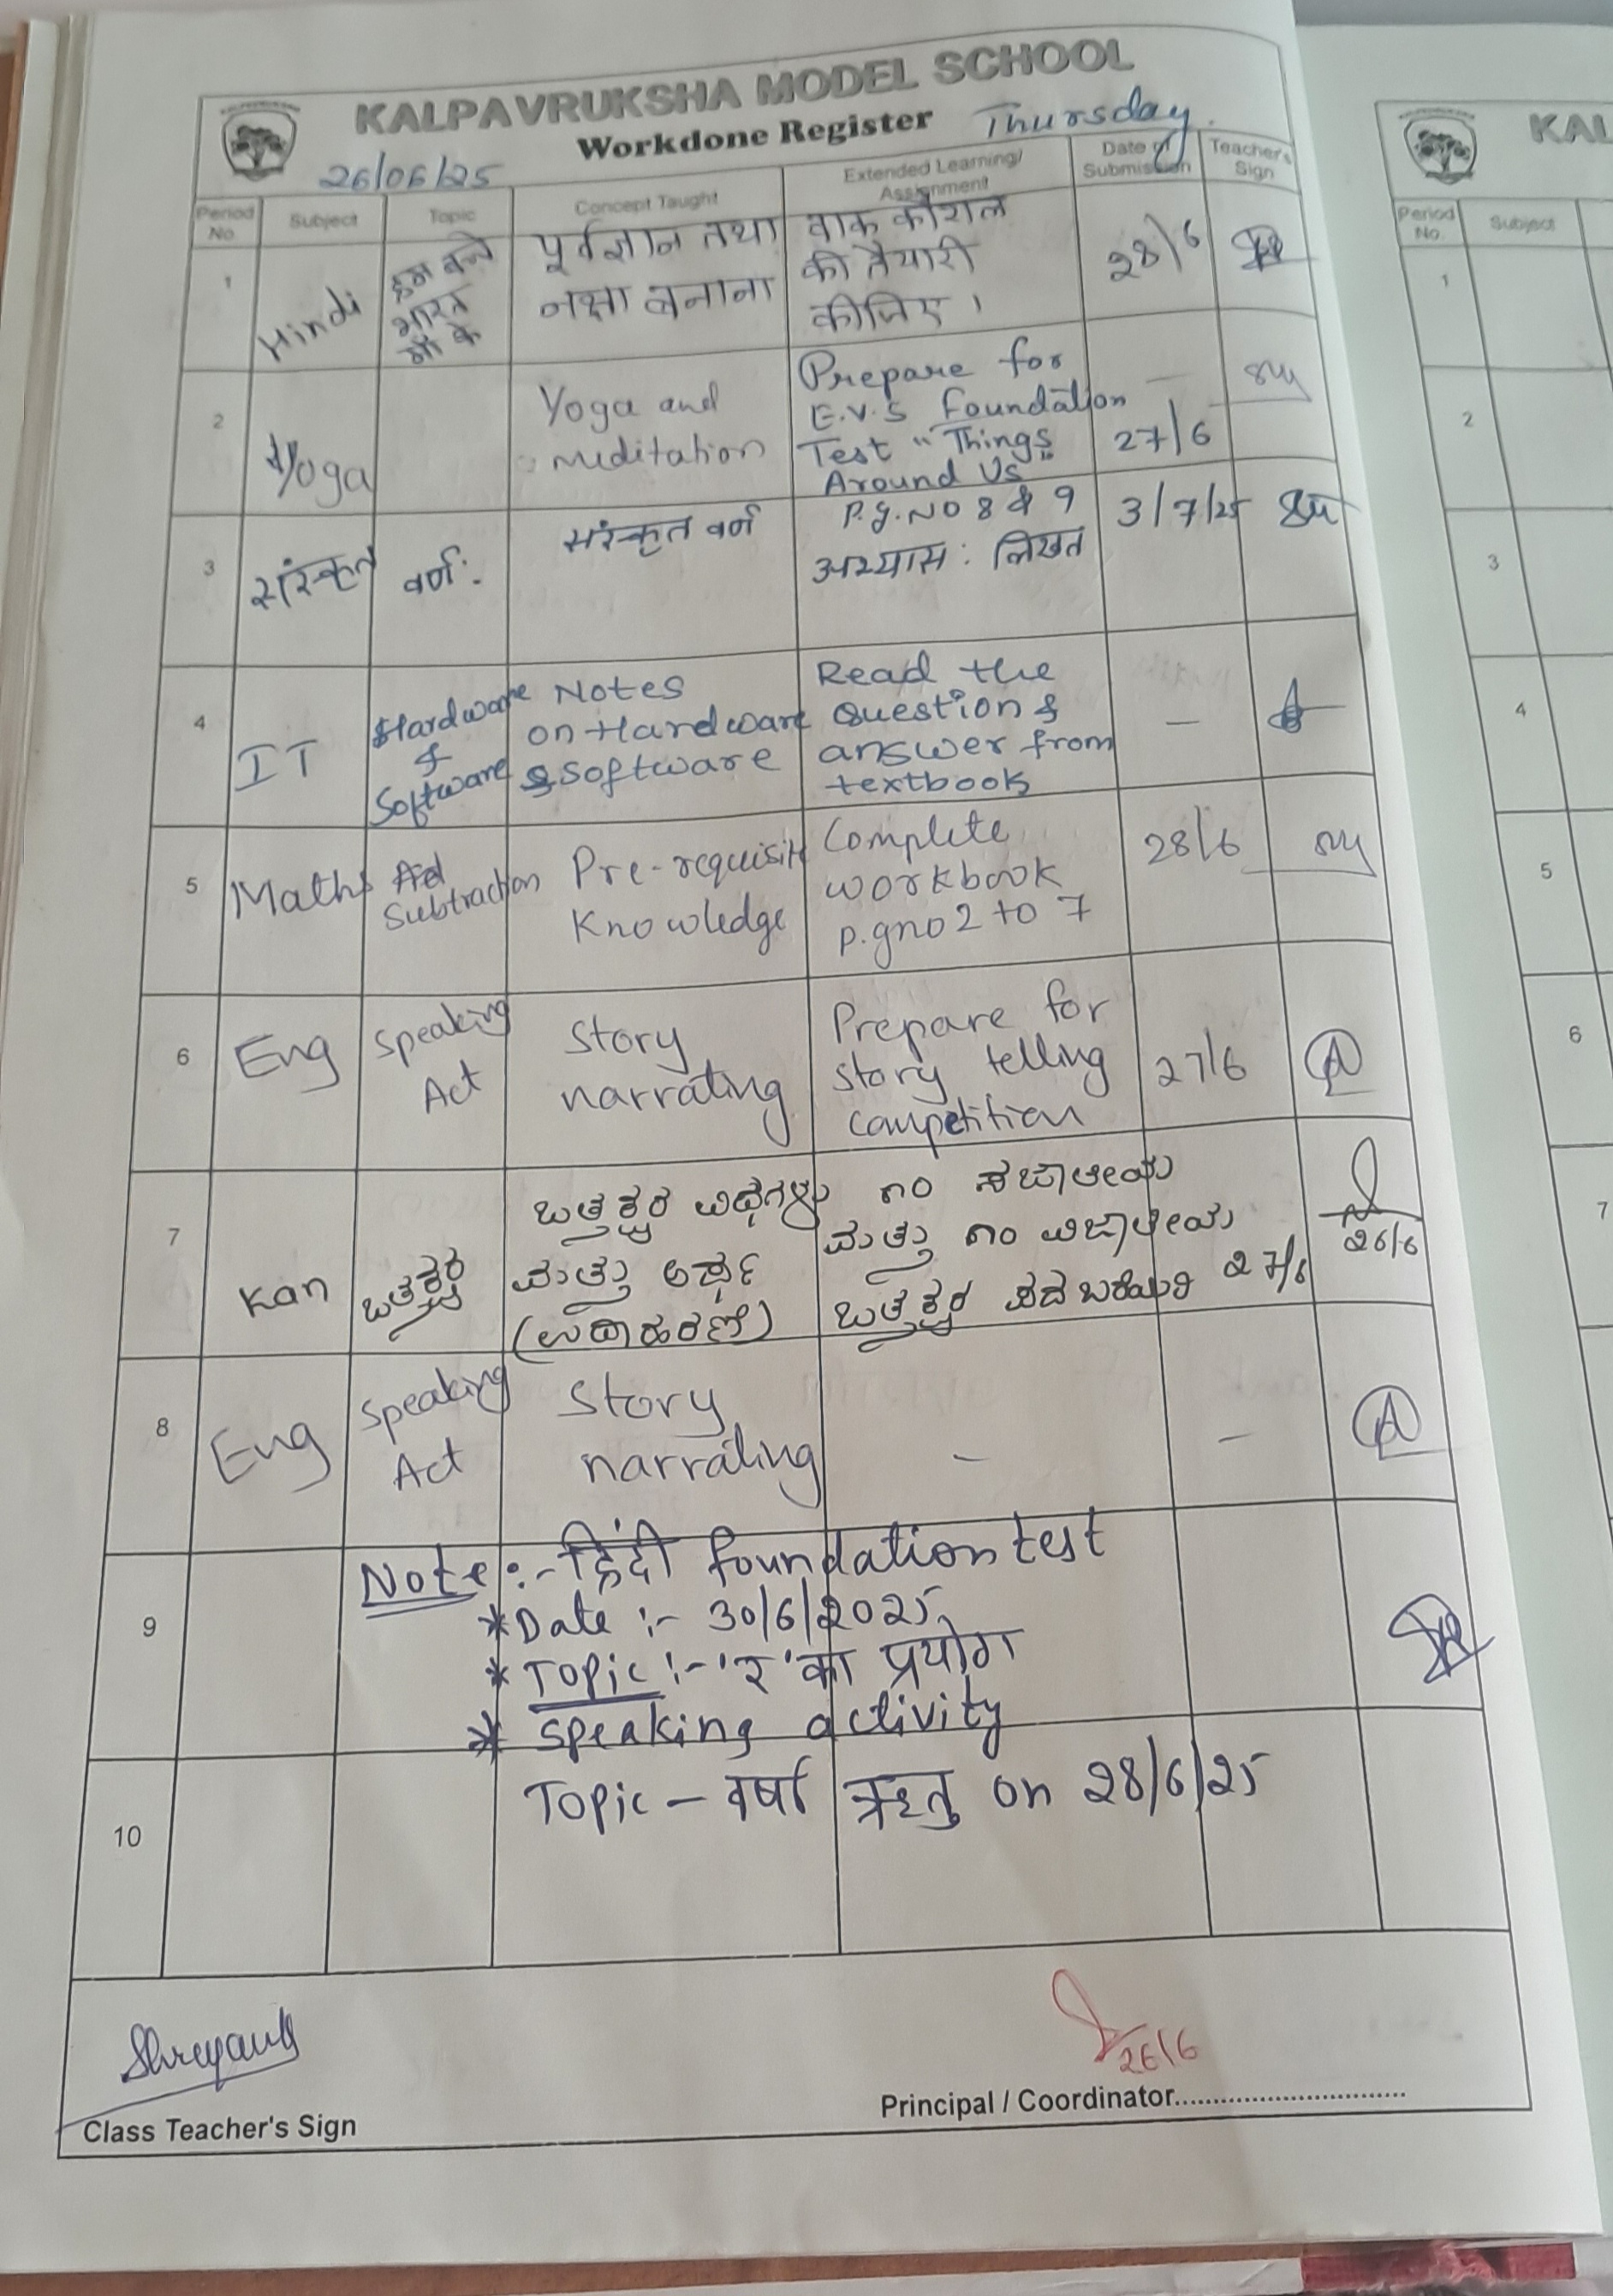 KALPAVRUKSHA MODEL SCHOOL
Workdone Register Thursday
26/06/25
Period No Subject Topic Concept Taught Extended Learning/ Assignment Date of Submission Teacher's Sign
1 Hindi हम बच्चे भारत माँ के पूर्वज्ञान तथा नक्षा बनाना वाक कौशल की तैयारी कीजिए। 28/6
2 Yoga Yoga and meditation Prepare for E.V.S Foundation Test "Things Around Us" - 27/6
3 संस्कृत वर्ण: संस्कृत वर्ण P.g.NO 8 & 9 अभ्यास: लिखत 3/7/25
4 IT Hardware & Software Notes on Hardware & Software Read the question & answer from textbook -
5 Maths Subtraction Pre-requisite Knowledge Complete workbook p.gno 2 to 7 28/6
6 Eng Speaking Act Story narrating Prepare for story telling competition 27/6 A
7 Kan ಒತ್ತಕ್ಷರ ಒತ್ತಕ್ಷರ ವಿಧಗಳು ಮತ್ತು ಅರ್ಥ (ಉದಾಹರಣೆ) ೧೦ ಸಜಾತೀಯ ಮತ್ತು ೧೦ ವಿಜಾತೀಯ ಒತ್ತಕ್ಷರ ಪದ ಬರೆಯಿರಿ 27/6 26/6
8 Eng Speaking Act Story narrating - - A
9 Note :- हिंदी foundation test
* Date :- 30/6/2025
* Topic :- 'र' का प्रयोग
* Speaking activity
10 Topic - वर्षा ऋतु on 28/6/25
26/6
Class Teacher's Sign Principal / Coordinator..............................
KAL
Period No. Subject
1
2
3
4
5
6
7